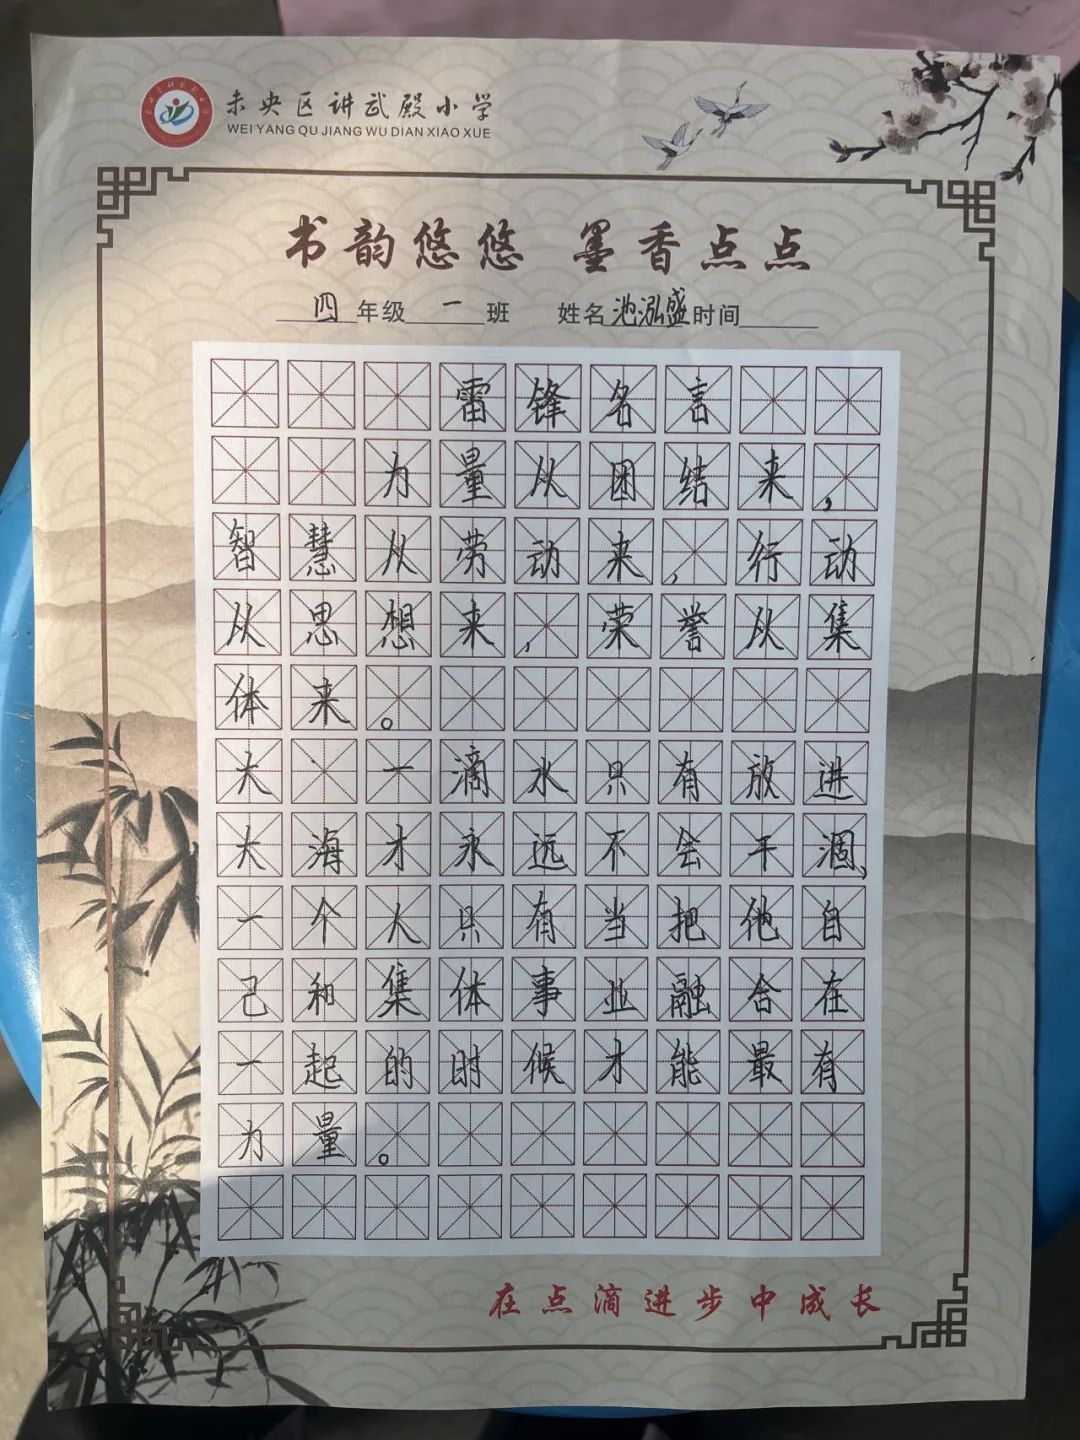 未央区讲武殿小学
WEI YANG QU JIANG WU DIAN XIAO XUE
书韵悠悠 墨香点点
四年级一班 姓名池泓盛时间
雷锋名言
力量从团结来，
智慧从劳动来，行动
从思想来，荣誉从集
体来。
大 一滴水只有放进
大海才永远不会干涸，
一个人只有当把他自
己和集体事业融合在
一起的时候才能最有
力量。
在点滴进步中成长